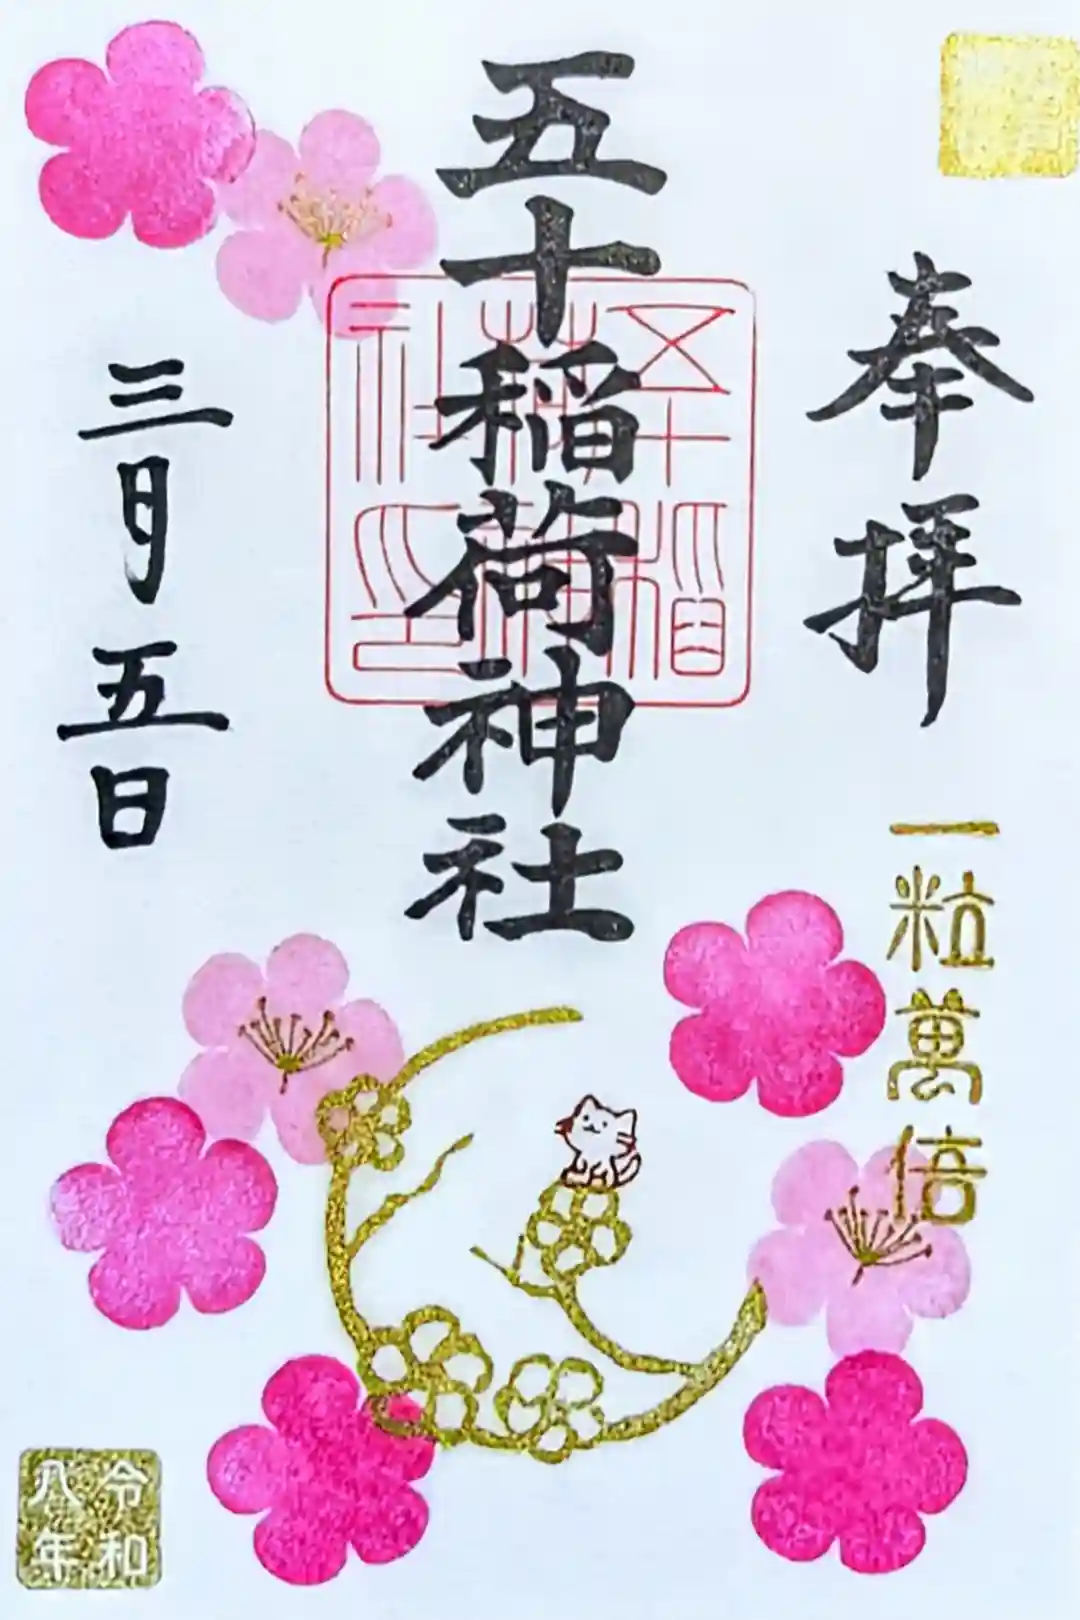 奉拝
一粒萬倍
五十稲荷神社
五十稲荷神社印
三月五日
令和八年